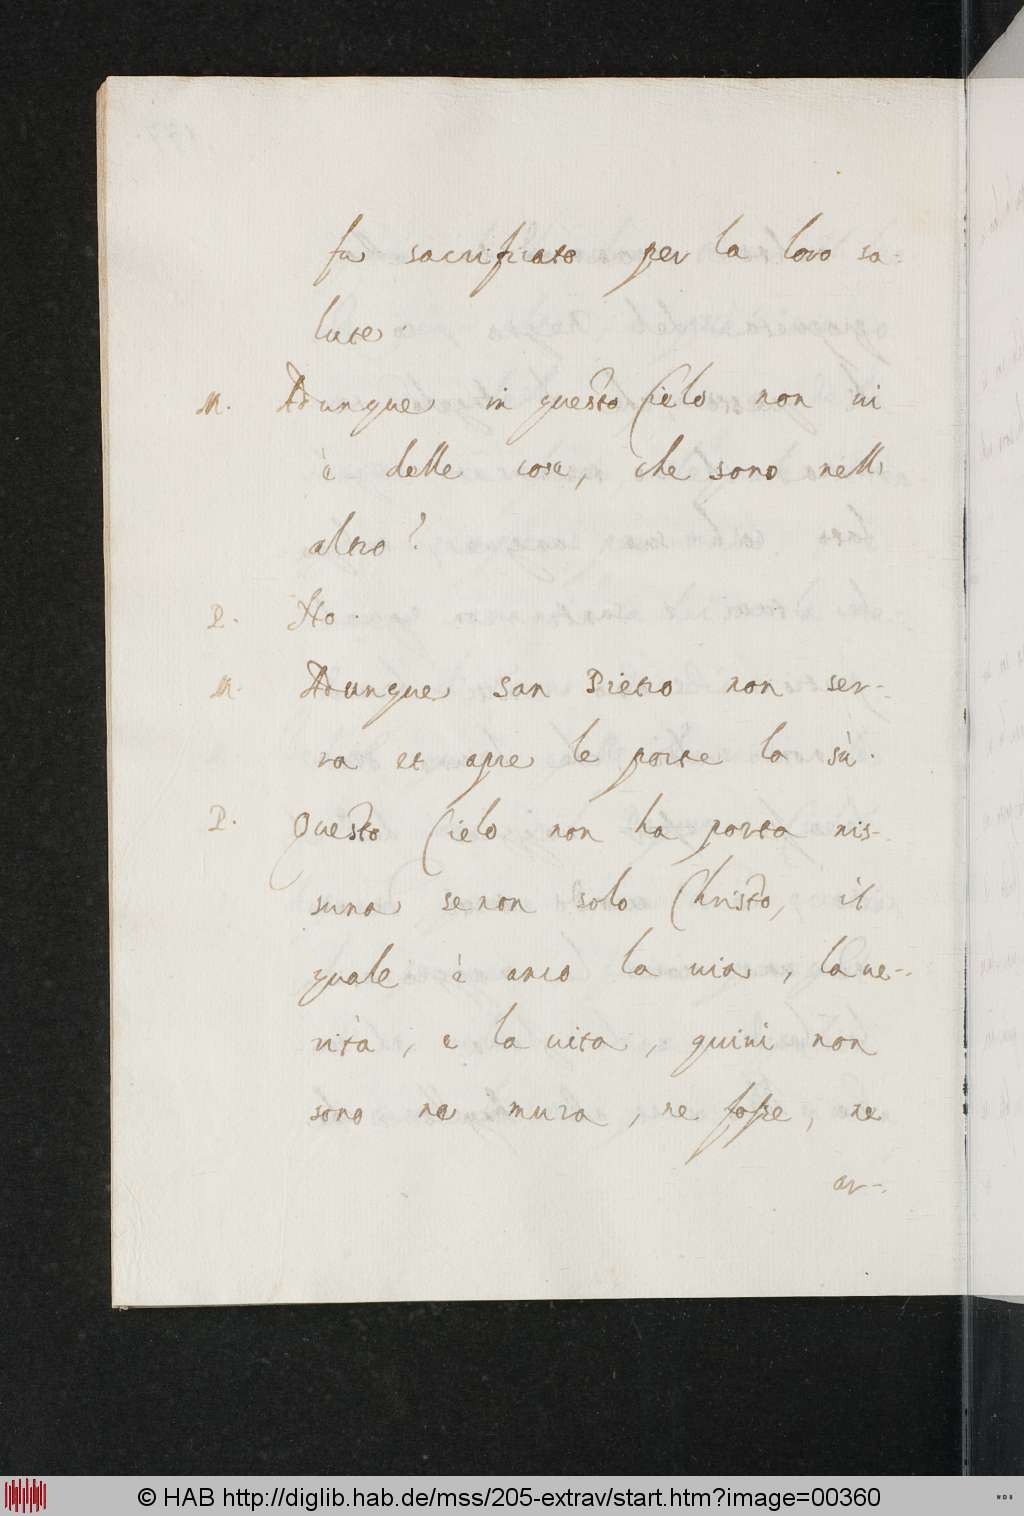 fu sacrificato per la loro sa-
lute.
M. Adunque in questo Cielo non ui
è delle cose, che sono nell
altro?
P. No.
M. Adunque San Pietro non ser-
ra et apre le porte la sù.
P. Questo Cielo non ha porta nis-
suna se non solo Christo, il
quale è anco la uia, la ue-
rità, e la uita, quiui non
sono ne mura, ne fosse, ne
ar-
© HAB http://diglib.hab.de/mss/205-extrav/start.htm?image=00360